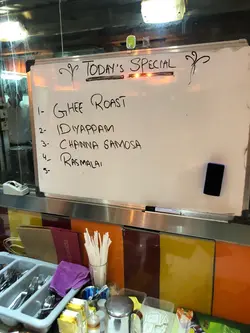 TODAY'S SPECIAL
1- GHEE ROAST
2- IDIYAPPAM
3- CHANNA SAMOSA
4- RASMALAI
5-